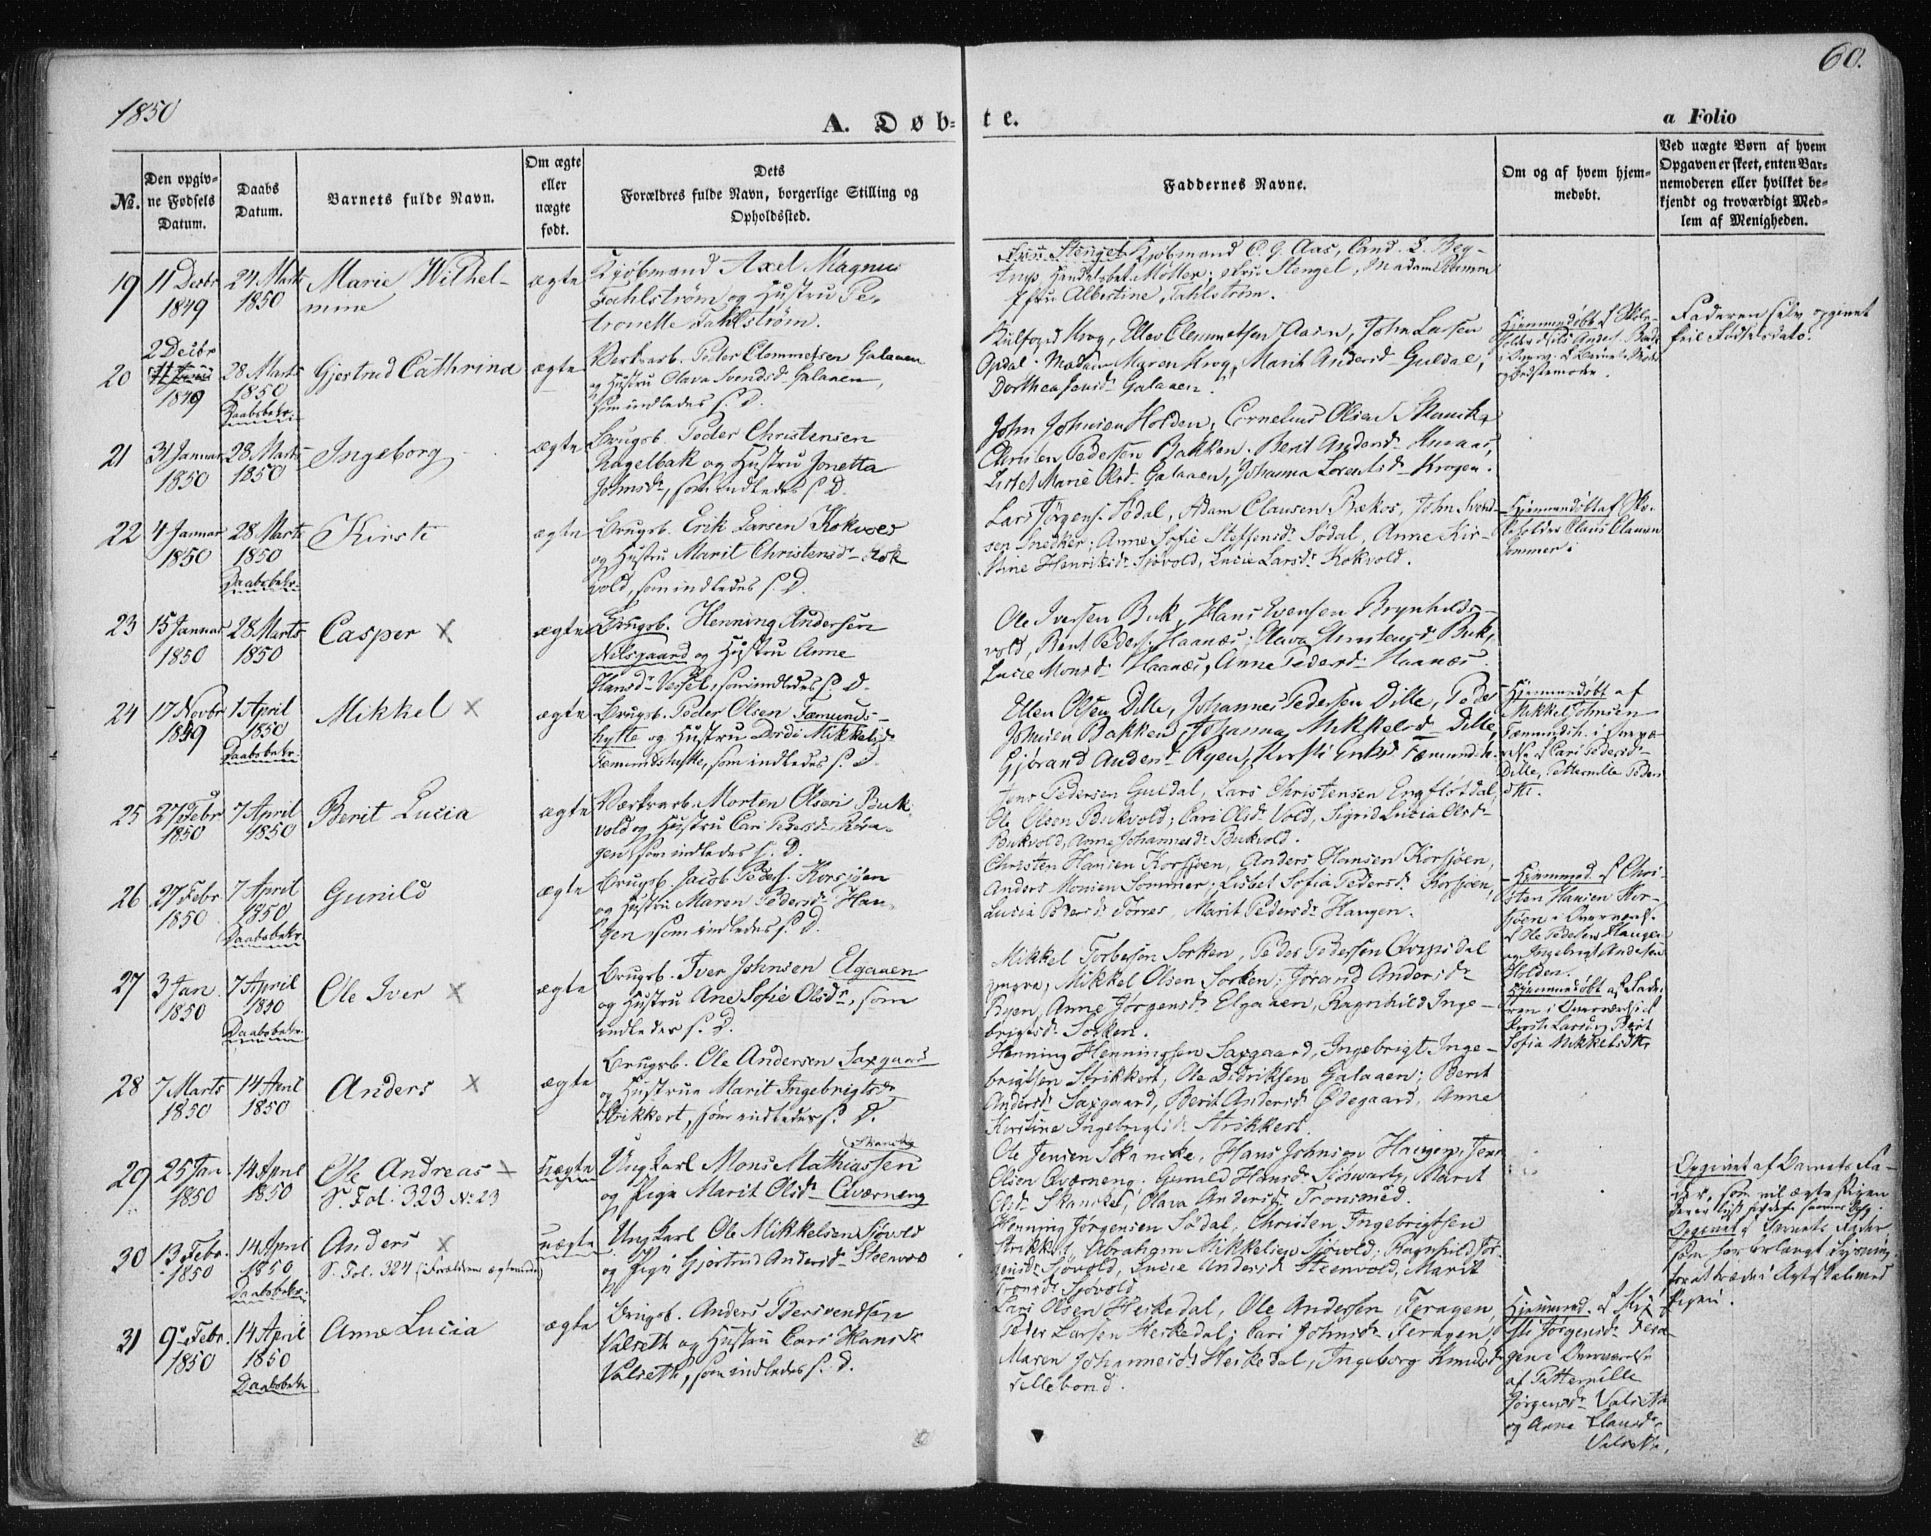 1850
60.
A. Døb-
te.
a Folio
No.
Den opgiv-
ne Fødsels
Datum.
Daabs
Datum.
Barnets fulde Navn.
Om ægte
eller
uægte
født.
Dets
Forældres fulde Navn, borgerlige Stilling og
Opholdssted.
Faddernes Navne.
Om og af hvem hjem-
medøbt.
Ved uægte Børn af hvem
Opgaven er skeet, enten Bar-
nemoderen eller hvilket be-
kjendt og troværdigt Med-
lem af Menigheden.
19
11 Decbr
1849
24 Marts
1850
Marie Wilhel-
mine
ægte
Kjøbmand Axel Magnus
Fahlstrøm og Hustru Pe-
tronette Fahlstrøm.
Kjøbmand C. G. Aas, Cand.
Stengel, Madam
Albertine Fahlstrøm.
20
2 Decbr
1849
28 Marts
1850
Daabsbekr.
Gjertrud Cathrina
ægte
Verksarb. Peder Clemmetsen Galaaen
og Hustru Olava Svendsd. Galaaen,
som indledes s. D.
Krog, Ellev Clemmetsen Aaen, John Larsen
Opdal. Madam Maren Krog, Marit Andersd. Guldal,
Dorthea Galaaen.
Hjemmedøbt af
Bedstemoder.
Faderen selv opgivet
feil Fødselsdato.
21
31 Januar
1850
28 Marts
1850
Ingeborg
ægte
Brugsb. Peder Christensen
Ragelbak og Hustru Jonetta
Johnsdr, som indledes s. D.
John Johnsen Holden, Cornelius Olsen Skancke,
Christen Pedersen Bakken, Berit Andersd.
Lisbet Marie Olsd. Galaaen, Johanna Lorentsd. Krogen.
22
4 Januar
1850
28 Marts
1850
Daabsbekr.
Kirsti
ægte
Brugsb. Erik Larsen Kokvold
og Hustru Marit Christensdr Kok
vold, som indledes s. D.
Lars Jørgens. Sødal, Adam Clausen Bækos, John Svend-
sen Snedker; Anne Sofie Steffensdr Sødal, Anne Kir-
stine Henriksdr Sjøvold, Lucie Larsdr Kokvold.
Hjemmedøbt af Sko-
leholder Claus Clausen
Sommer.
23
15 Januar
1850
28 Marts
1850
Casper
ægte
Brugsb. Henning Andersen
Nilsgaard og Hustru Anne
Hansdr Vessel, som indledes s. D.
Ole Iversen Buk, Hans Evensen Brynhilds-
vold, Bent Peders. Haanæs, Olava Buk,
Lucie Monsdr Haanæs, Anne Pedersdr Haanæs.
24
17 Novbr
1849
1 April
1850
Daabsbekr.
Mikkel
ægte
Brugsb. Peder Olsen Fæmunds-
hytte og Hustru Dordi Mikkelsdr
Fæmundshytte, som indledes s. D.
Ellen Olsen Dille, Johannes Pedersen Dille, Peder
Johnsen Bakken, Johanna Mikkelsd. Dille,
Gjørand Andersdr Ryen, Kirsti Eriksd. Fæmundsh.
Hjemmedøbt af
Mikkel Johnsen
Fæmundsh. i Overvæ-
Cari Pedersdr
Dille, Petternille Peders
dtr.
25
27 Febr
1850
7 April
1850
Berit Lucia
ægte
Værksarb. Morten Olsen Buk
vold og Hustru Cari Pedersdr
gen, som indledes s. D.
Jens Pedersen Guldal, Lars Christensen Engfløtdal,
Ole Olsen Bukvold; Cari Olsdr Vold, Sigrid Lucia Olsdr
Bukvold, Anne Johannesdr Bukvold.
26
27 Febr
1850
7 April
1850
Daabsbekr.
Gunild
ægte
Brugsb. Jacob Peders. Korssjøen
og Hustru Maren Pedersdr Hau-
gen, som indledes s. D.
Christen Hansen Korsjøen, Anders Hansen Korsjøen,
Anders Monsen Sommer; Lisbet Sofia Pedersdr Korsjøen,
Lucia Pedersdr Torres, Marit Pedersdr Haugen.
Hjemmed. af Chri-
sten Hansen Kor-
sjøen i Overværelse
af Ole Pedersen Haugen
og Ingebrigt Andersen
Holden.
27
3 Jan.
1850
7 April
1850
Daabsbekr.
Ole Iver
ægte
Brugsb. Iver Johnsen Elgaaen
og Hustru Ane Sofie Olsdr, som
indledes s. D.
Mikkel Torbersen Sorken, Peder Pedersen Qvipsdal
yngre, Mikkel Olsen Sorken; Jorand Andersdr
Ryen, Anne Jørgensdr Elgaaen, Ragnhild Inge-
brigtsdr Sorken.
Hjemmedøbt af Fade-
ren i Overværelse af
Kirsti Larsd. og Berit
Sofia Mikkelsdtr.
28
7 Marts
1850
14 April
1850
Anders
ægte
Brugsb. Ole Andersen Saxgaard
og Hustrue Marit Ingebrigtsdr
Strikkert, som indledes s. D.
Henning Henningsen Saxgaard, Ingebrigt Inge-
brigtsen Strikkert, Ole Didriksen Galaaen; Berit
Andersdr Saxgaard, Berit Andersdr Ødegaard, Anne
Kerstine Ingebrigtsdr Strikkert.
29
25 Jan.
1850
14 April
1850
Ole Andreas
S. Fol. 323 No. 23
uægte
Skancke
Ungkarl Mons Mathiassen
og Pige Marit Olsdr Qværneng
Ole Jensen Skancke, Hans Johnsen Haugen, Jens
Olsen Qværneng. Gunild Hansdr Sjøwart, Marit
Olsdr Skancke, Olava Andersdr Tronsmed.
Opgivet af Barnets Fa-
der, som vil ægte Pigen
30
13 Febr.
1850
14 April
1850
Daabsbekr.
Anders
S. Fol. 324 (Forældrene ægteviede)
uægte
Ungkarl Ole Mikkelsen Sjøvold
og Pige Gjertrud Andersdr Steenvold
Henning Jørgensen Sødal, Christen Ingebrigtsen
Strikkert, Abraham Mikkelsen Sjøvold; Ragnhild Jør-
gensdr Sjøvold, Lucie Andersdr Steenvold, Marit
Sjøvold.
Opgivet af Barnets Fader
som har forlangt Lysning
for at træde i Ægteskab med
Pigen.
31
9de Febr.
1850
14 April
1850
Daabsbekr.
Anne Lucia
ægte
Brugsb. Anders Bersvendsen
Valseth og Hustru Cari Hansdr
Valseth, som indledes s. D.
Lars Olsen Heskedal, Ole Andersen Feragen,
Peder Larsen Heskedal; Cari Johnsdr Feragen,
Maren Johannesdr Heskedal, Ingeborg Knudsdr
Lillebond.
Hjemmed. af Kir-
sti Jørgensdr Fera-
gen i Overværelse
af Petternille
Jørgensdr Valseth
og Anne Clausdr
Valseth.